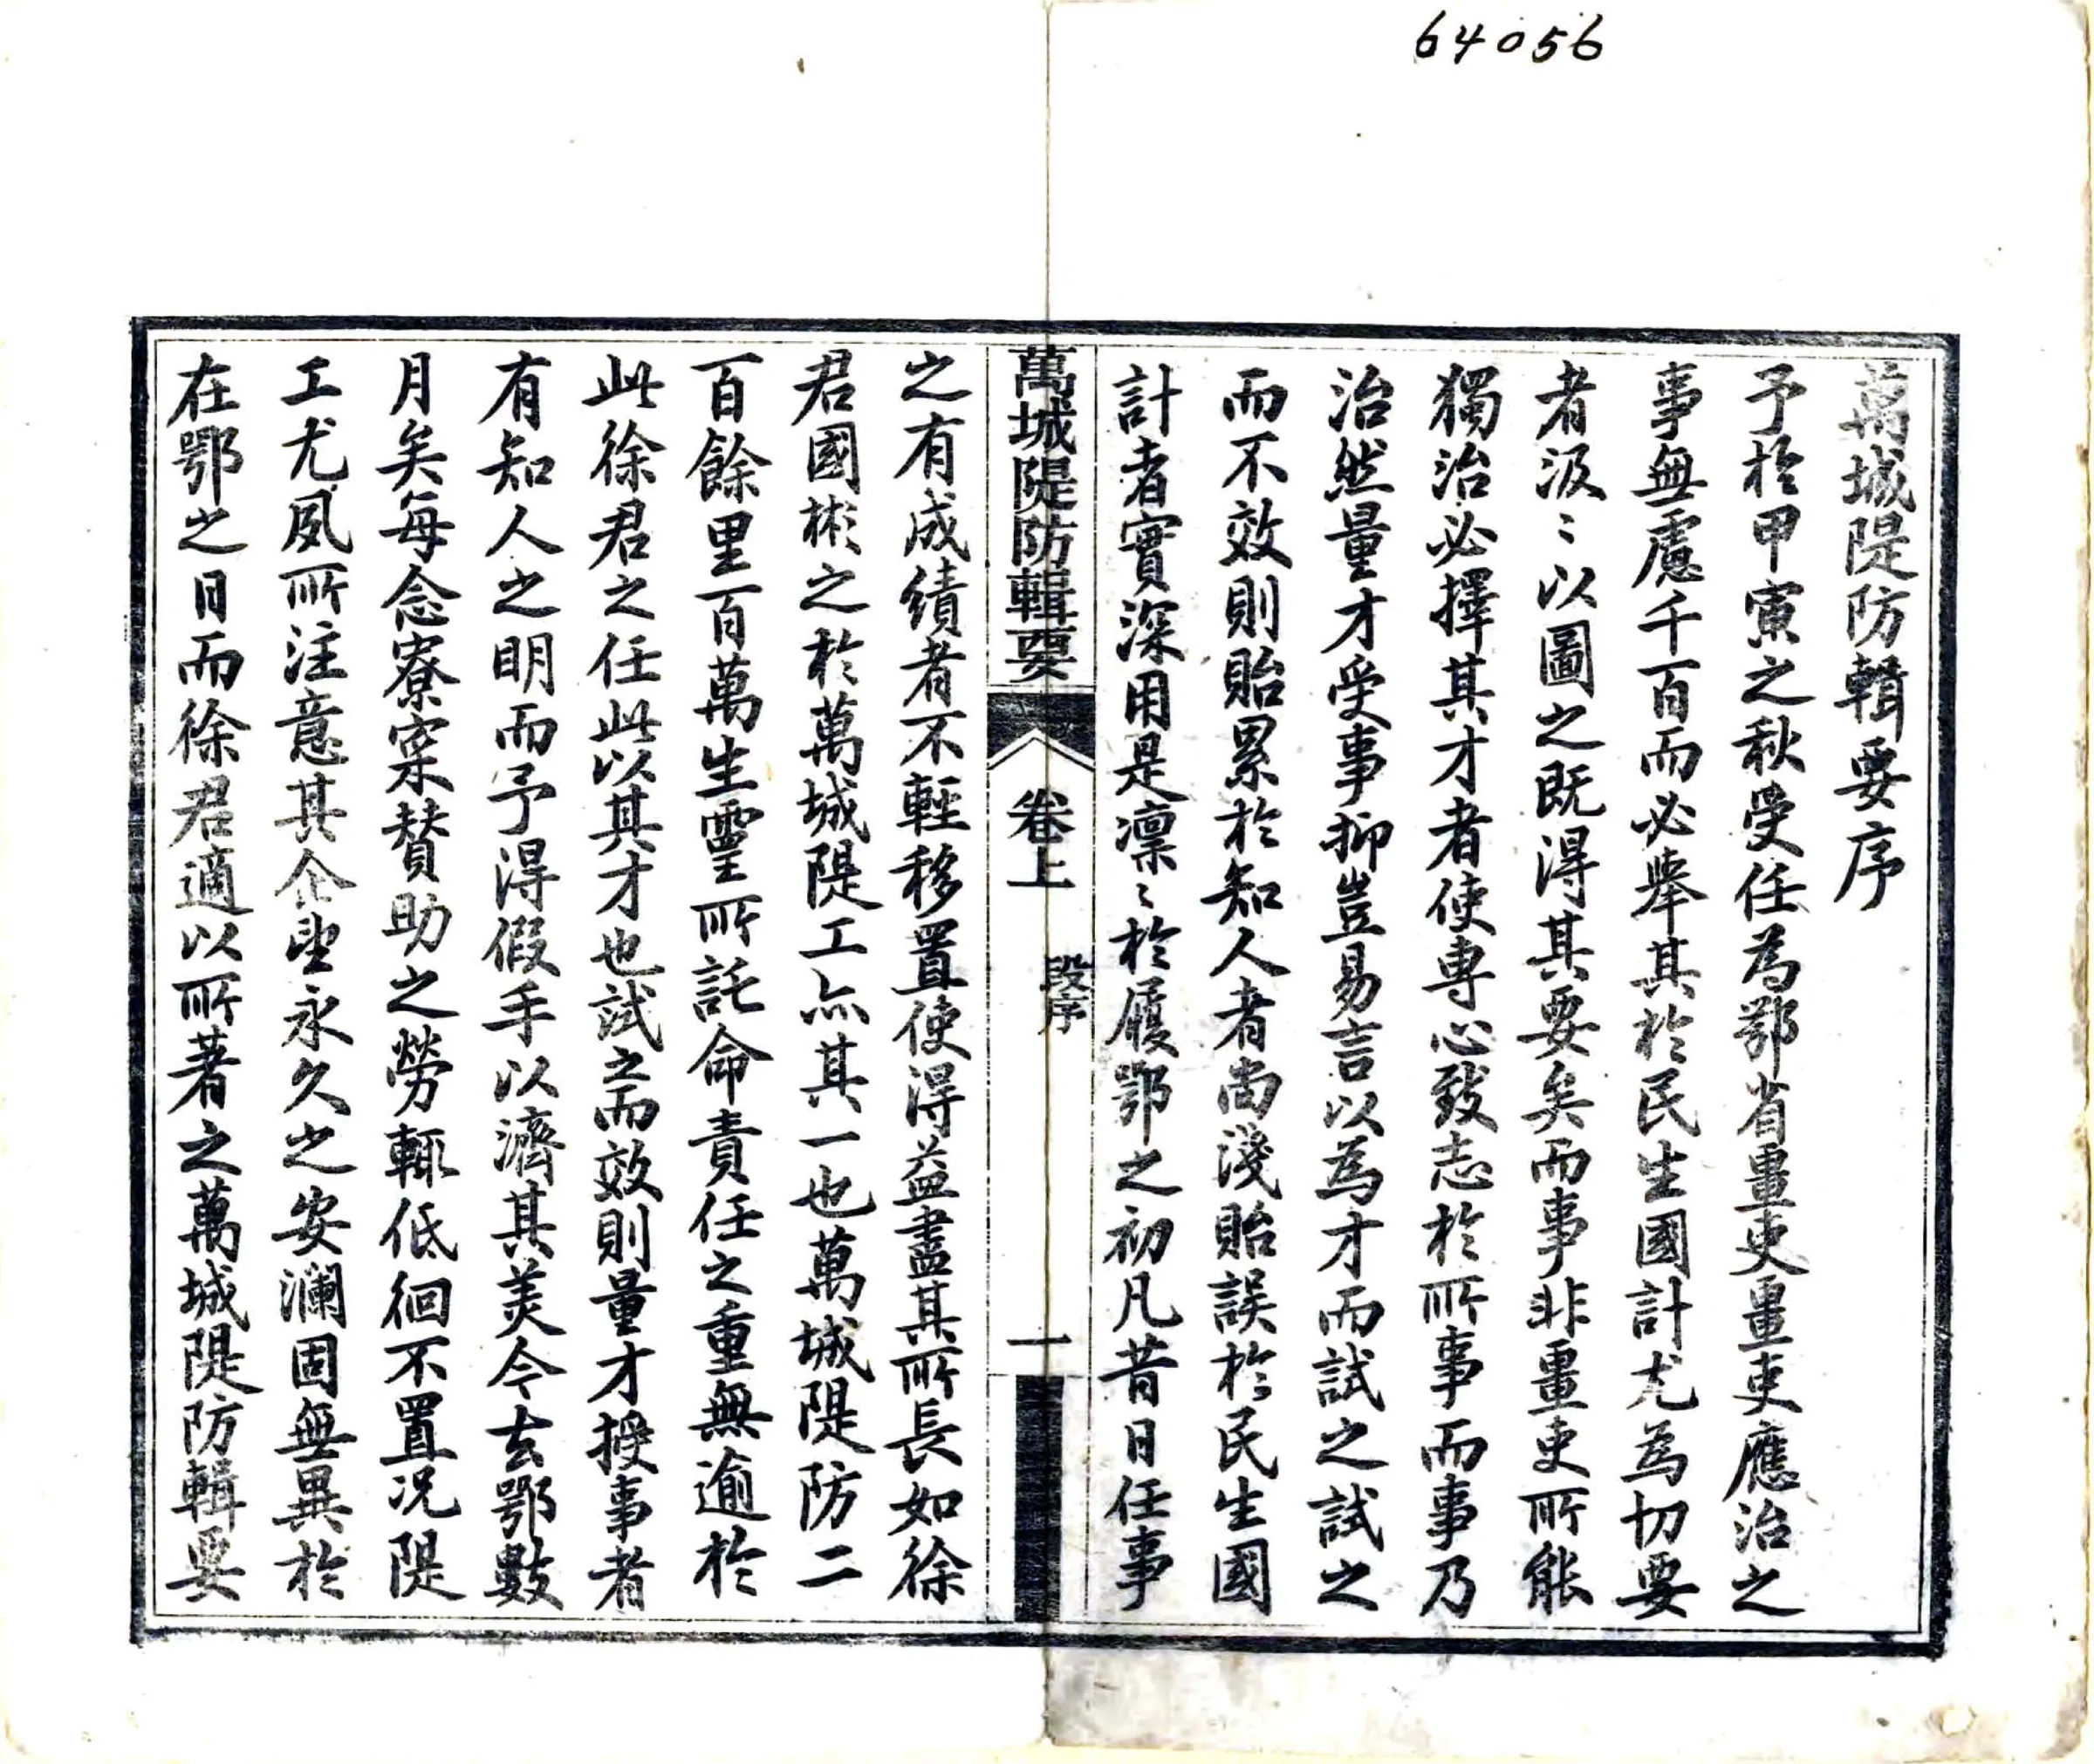 64056
萬城隄防輯要序
予於甲寅之秋受任為鄂省畺吏畺吏應治之
事無慮千百而必舉其於民生國計尤為切要
者汲〻以圖之既得其要矣而事非畺吏所能
獨治必擇其才者使專心致志於所事而事乃
治然量才受事抑豈易言以為才而試之試之
而不效則貽累於知人者尚淺貽誤於民生國
計者實深用是凜〻於履鄂之初凡昔日任事
萬城隄防輯要
卷上
段序
一
之有成績者不輕移置使得益盡其所長如徐
君國彬之於萬城隄工亦其一也萬城隄防二
百餘里百萬生靈所託命責任之重無逾於
此徐君之任此以其才也試之而效則量才授事者
有知人之明而予得假手以濟其美今去鄂數
月矣每念寮寀贊助之勞輒低徊不置況隄
工尤夙所注意其企望永久之安瀾固無異於
在鄂之日而徐君適以所著之萬城隄防輯要